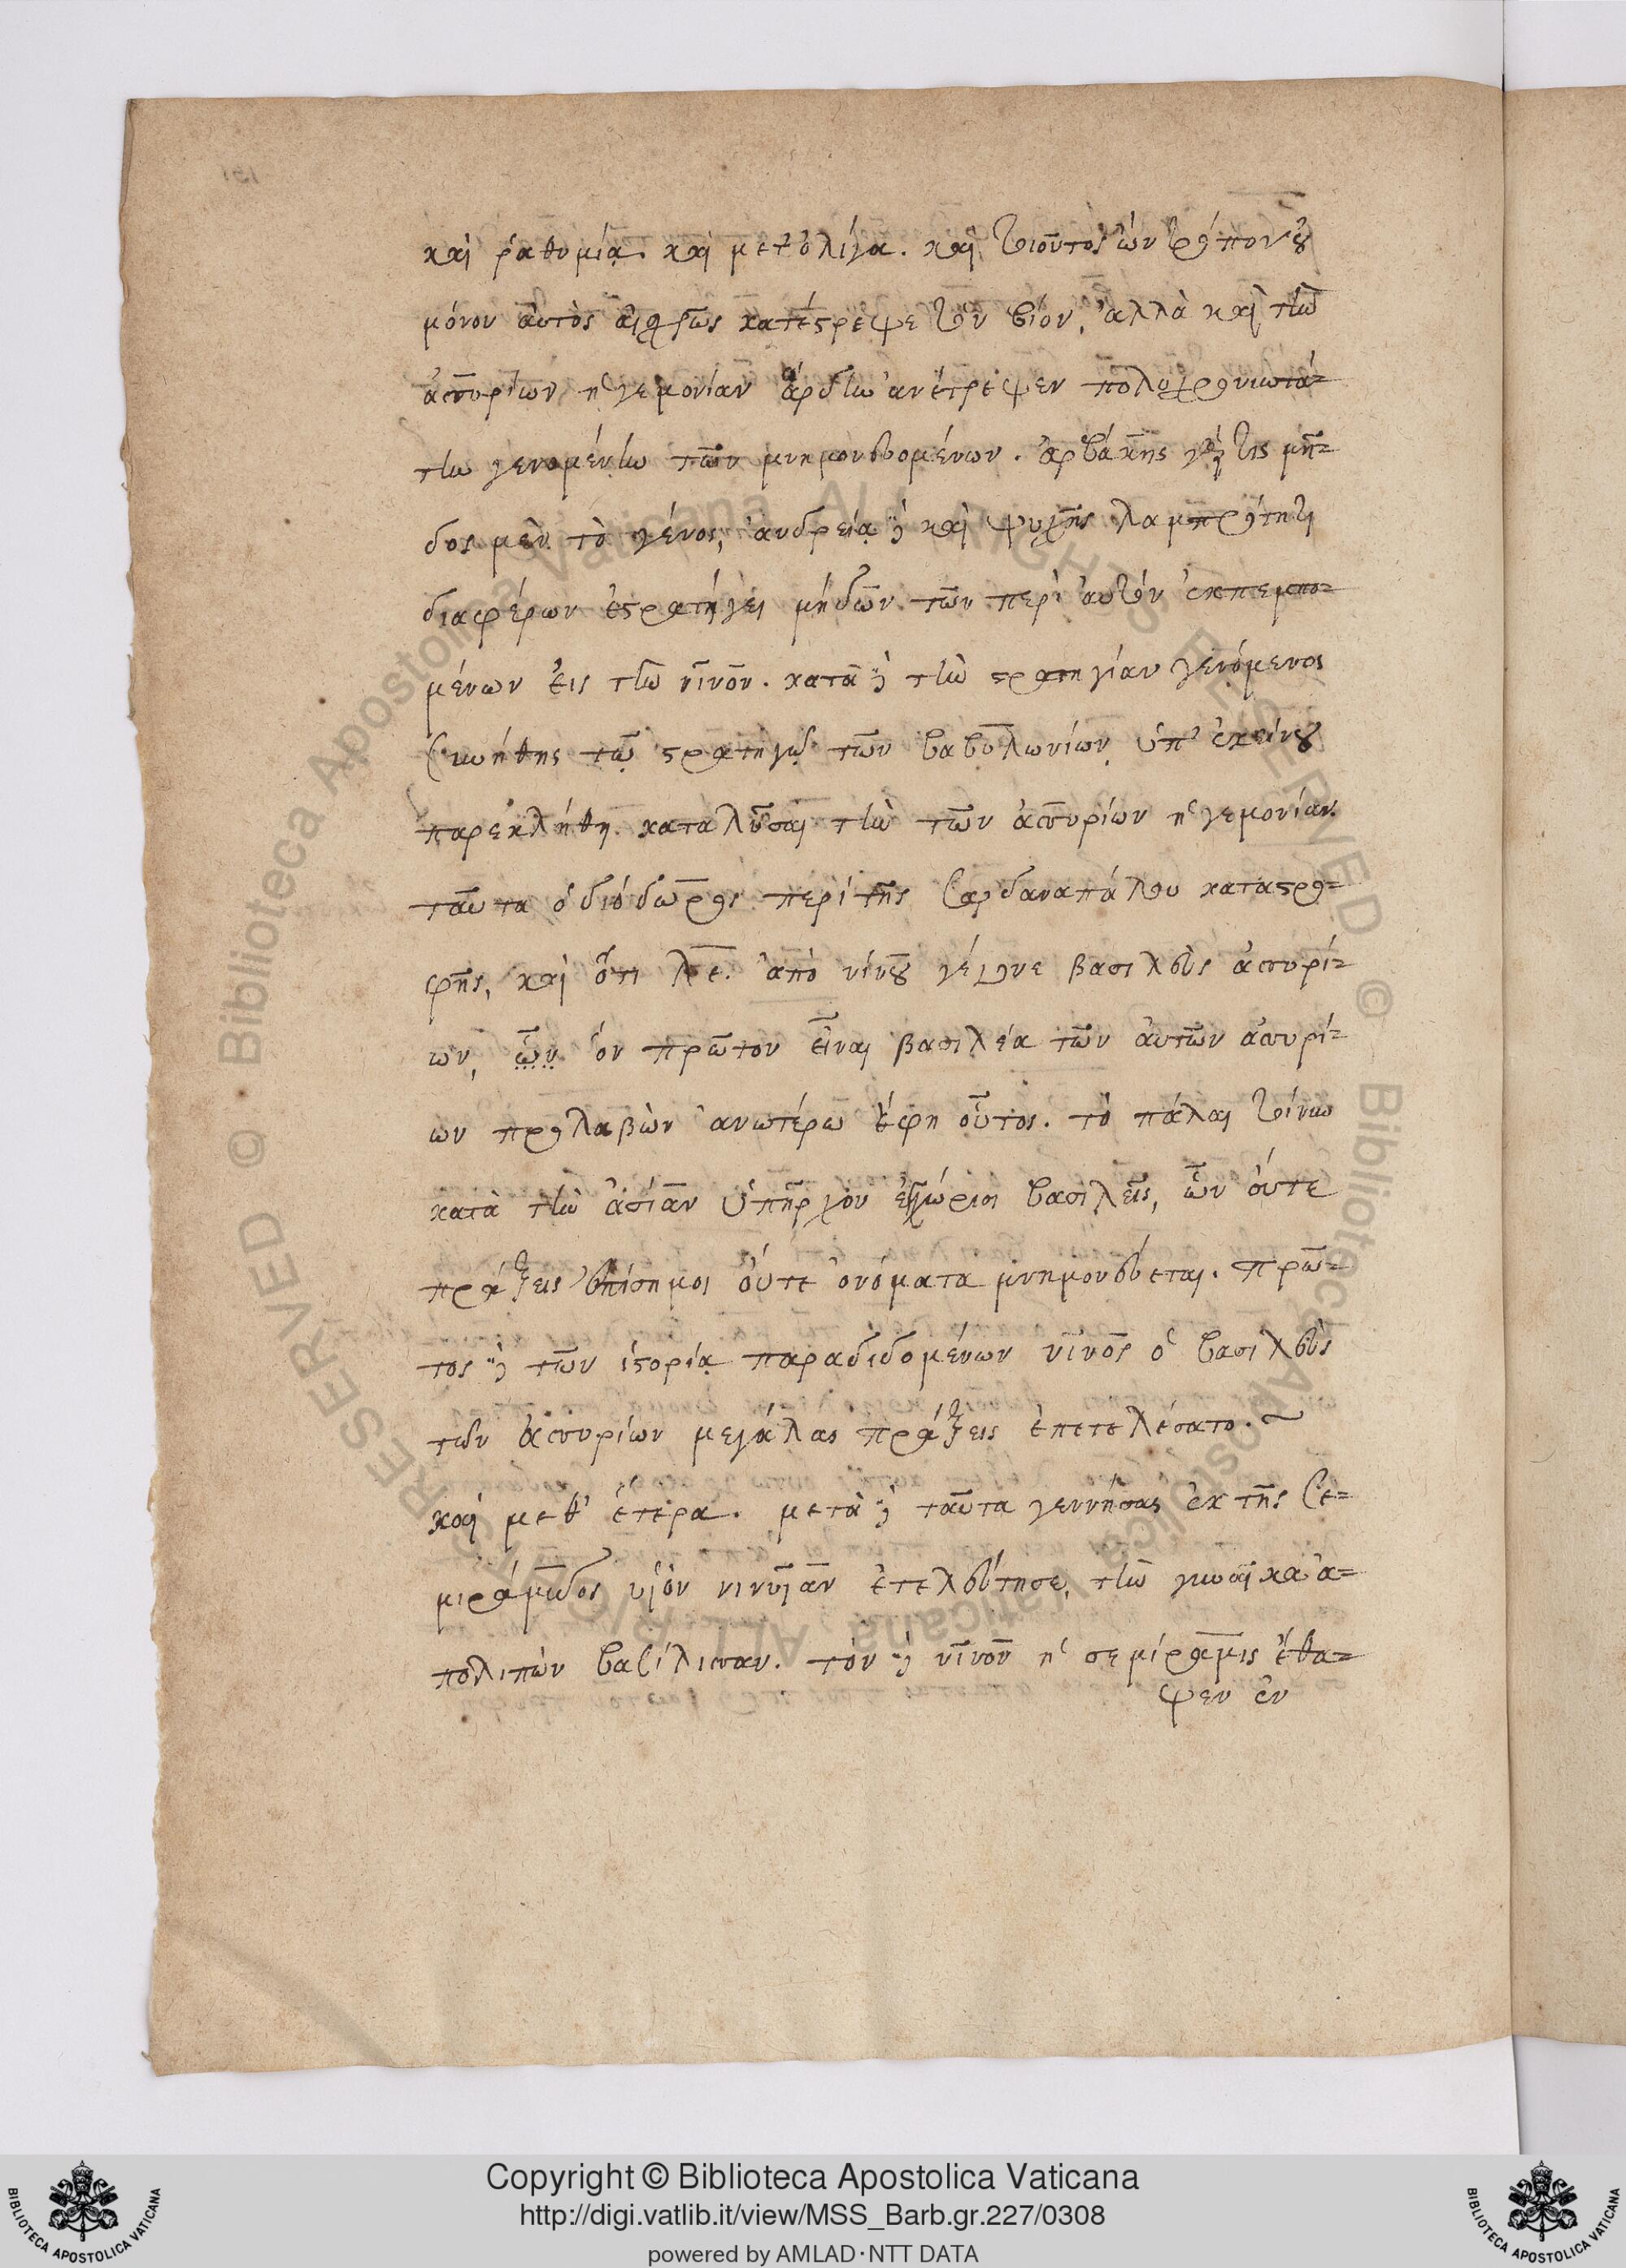 καὶ ῥαθυμίᾳ. καὶ μετ' ὀλίγα. καὶ τοιοῦτος ὢν τρόπον οὐ
μόνον αὐτὸς αἰσχρῶς κατέστρεψε τὸν βίον, ἀλλὰ καὶ τὴν
ἀσσυρίων ἡγεμονίαν ἄρδην ἀνέτρεψεν πολυχρονιωτά=
την γενομένην τῶν μνημονευομένων. ἀρβάκης γάρ τις μῆ=
δος μὲν τὸ γένος, ἀνδρείᾳ δὲ καὶ ψυχῆς λαμπρότητι
διαφέρων ἐστρατήγει μήδων τῶν περὶ αὐτὸν ἐκπεμπο=
μένων εἰς τὴν νῖνον. κατὰ δὲ τὴν στρατηγίαν γενόμενος
συνήθης τῷ στρατηγῷ τῶν βαβυλωνίων ὑπ' ἐκείνου
παρεκλήθη καταλῦσαι τὴν τῶν ἀσσυρίων ἡγεμονίαν.
ταῦτα ὁ διόδωρος περὶ τῆς σαρδαναπάλου καταστρο=
φῆς, καὶ ὅτι λε. ἀπὸ νίνου γέγονε βασιλεὺς ἀσσυρί=
ων, ὧν ὃν πρῶτον εἶναι βασιλέα τῶν αὐτῶν ἀσσυρί=
ων προλαβὼν ἀνωτέρω ἔφη οὗτος. τὸ πάλαι τοίνυν
κατὰ τὴν ἀσίαν ὑπῆρχον ἐγχώριοι βασιλεῖς, ὧν οὔτε
πράξεις ἐπίσημοι οὔτε ὀνόματα μνημονεύεται. πρῶ=
τος δὲ τῶν ἱστορίᾳ παραδιδομένων νῖνος ὁ βασιλεὺς
τῶν ἀσσυρίων μεγάλας πράξεις ἐπετελέσατο. ~
καὶ μεθ' ἕτερα. μετὰ δὲ ταῦτα γεννήσας ἐκ τῆς σε=
μιράμιδος υἱὸν νινύαν ἐτελεύτησε, τὴν γυναῖκα ἀ=
πολιπὼν βασίλισσαν. τὸν δὲ νῖνον ἡ σεμίραμις ἔθα=
ψεν ἐν
Copyright © Biblioteca Apostolica Vaticana
http://digi.vatlib.it/view/MSS_Barb.gr.227/0308
powered by AMLAD·NTT DATA